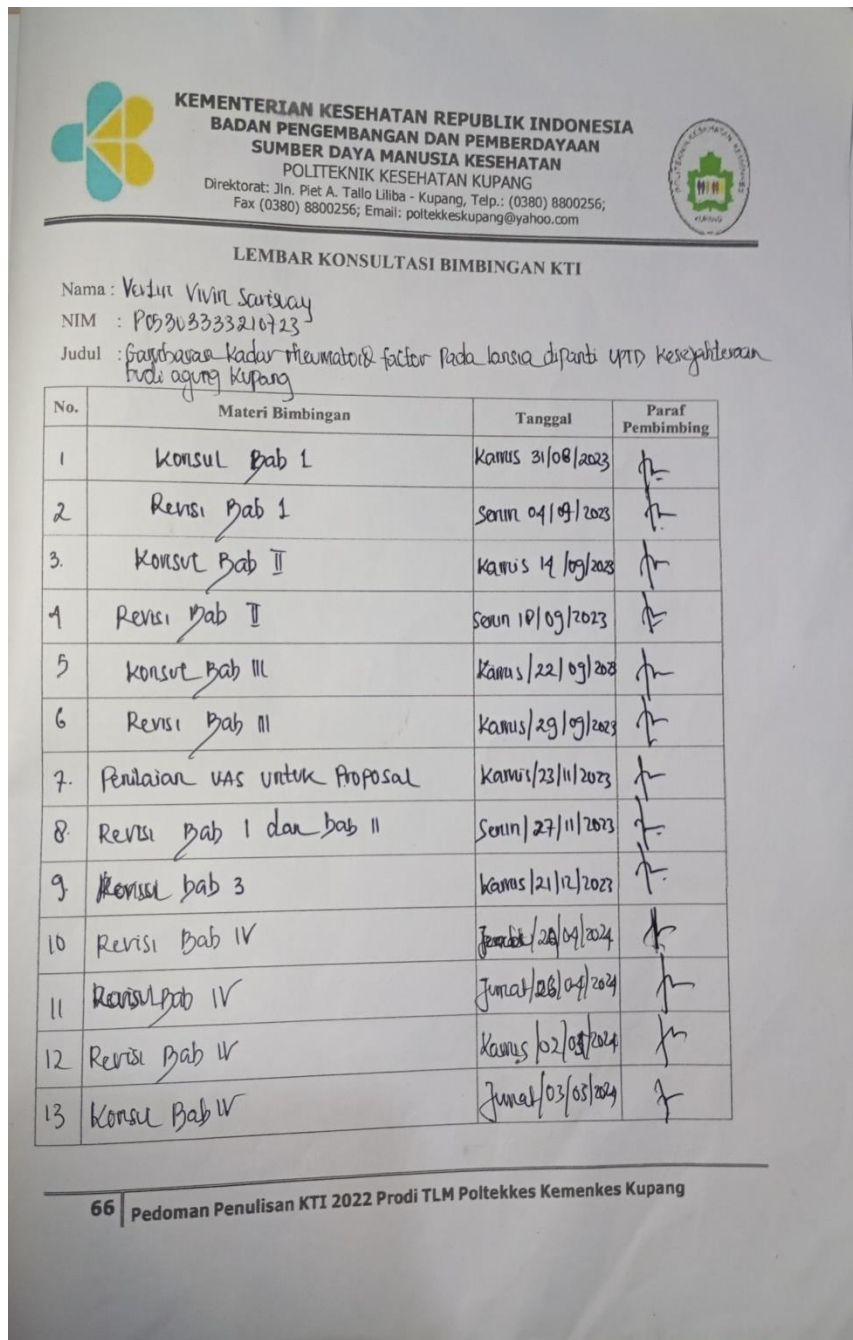 KEMENTERIAN KESEHATAN REPUBLIK INDONESIA
BADAN PENGEMBANGAN DAN PEMBERDAYAAN
SUMBER DAYA MANUSIA KESEHATAN
POLITEKNIK KESEHATAN KUPANG
Direktorat: Jln. Piet A. Tallo Liliba - Kupang, Telp.: (0380) 8800256;
Fax (0380) 8800256; Email: poltekkeskupang@yahoo.com
LEMBAR KONSULTASI BIMBINGAN KTI
Nama : Vivin
NIM : PO530333210723
Judul : Gambaran Kadar rheumatoid factor Pada lansia dipanti UPTD Kesejahteraan
budi agung Kupang
No. Materi Bimbingan Tanggal Paraf Pembimbing
1 Konsul Bab 1 Kamis 31/08/2023
2 Revisi Bab 1 Senin 04/09/2023
3. Konsul Bab II Kamis 14/09/2023
4 Revisi Bab II Senin 18/09/2023
5 Konsul Bab III Kamis/22/09/2023
6 Revisi Bab III Kamis/29/09/2023
7. Penilaian UAS untuk Proposal Kamis/23/11/2023
8. Revisi Bab I dan bab II Senin/27/11/2023
9. bab 3 Kamis/21/12/2023
10 Revisi Bab IV /04/2024
11 Bab IV Jumat/26/04/2024
12 Revisi Bab IV Kamis/02/05/2024
13 Konsul Bab IV Jumat/03/05/2024
66 Pedoman Penulisan KTI 2022 Prodi TLM Poltekkes Kemenkes Kupang